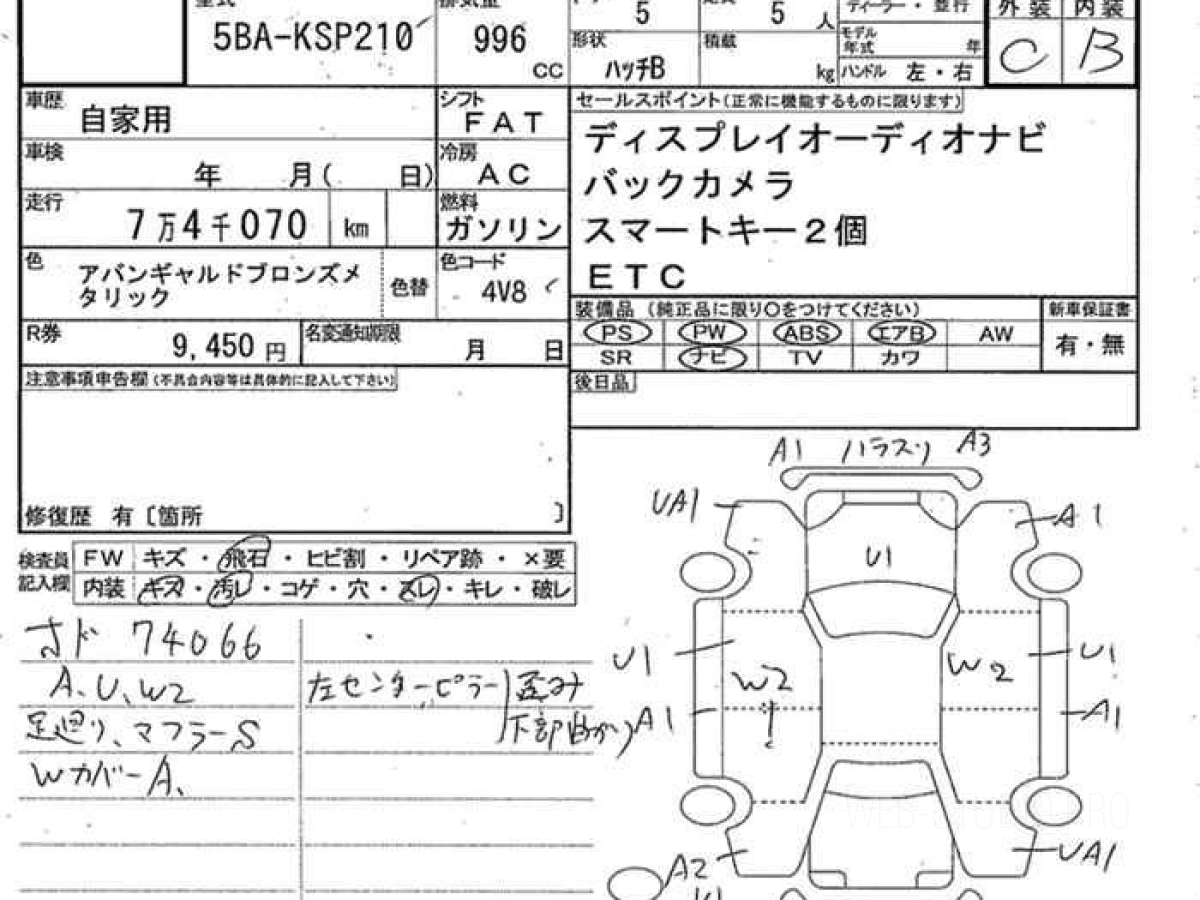 型式 排気量 5 5 人 ディーラー・並行 外装 内装
5BA-KSP210 996 CC
形状 ハッチB 積載 kg
モデル年式 年 C B
ハンドル 左・右
車歴 自家用
シフト FAT
セールスポイント(正常に機能するものに限ります)
ディスプレイオーディオナビ
車検 年 月( 日)
冷房 AC
バックカメラ
走行 7万4千070 km
燃料 ガソリン
スマートキー2個
ETC
色 アバンギャルドブロンズメ
タリック
色替
色コード 4V8
装備品 (純正品に限り〇をつけてください)
新車保証書
PS PW ABS エアB AW
有・無
SR ナビ TV カワ
R券 9,450 円
名変通知期限 月 日
注意事項申告欄(不具合内容等は具体的に記入して下さい)
後日品
修復歴 有〔箇所 〕
検査員
記入欄
FW キズ・飛石・ヒビ割・リペア跡・×要
内装 キズ・汚レ・コゲ・穴・スレ・キレ・破レ
オド 74066
A、U、W2
足廻り、マフラーS
WカバーA、
左センターピラー 歪み
下部曲がり
A1 ハラスリ A3
UA1
A1
U1
U1
W2
W2
U1
A1
A1
A2
UA1